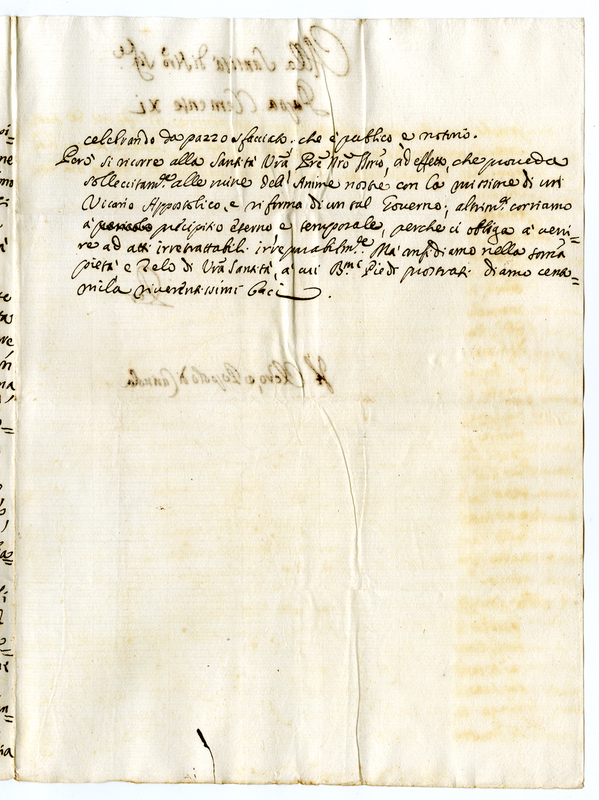 celebrando da pazzo sfacciato. che è publico è notorio.
Però si ricorre alla Santità Vrã Prẽ Nrõ Smõ, ad effetto, che proveda
sollecitam.te alle ruine dell'Anime nostre con la missione di un
Vicario Appostolico, e riforma di un tal Governo; altrim.te corriamo
à precipitio eterno e temporale, perche ci obliga à veni=
re ad atti irretrattabili irreparabilm.te. Mà confidiamo nella somã
pietà e Zelo di Vrã Santità, a cui B.mi Piedi prostrati diamo cento
mila riverentissimi baci.
Alla Santità di Nrõ Sig.re
Papa Clemente XI
Il Clero, e Popolo di